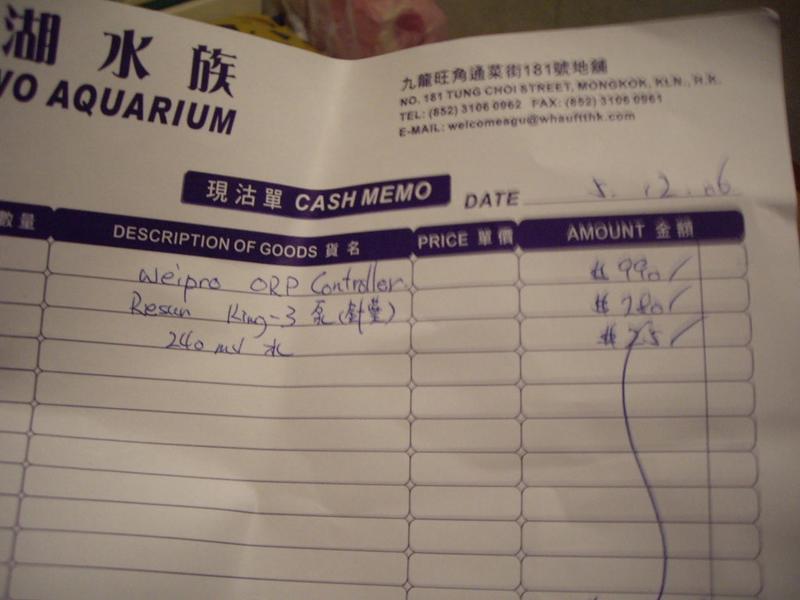 湖水族
AQUARIUM
九龍旺角通菜街181號地舖
NO. 181 TUNG CHOI STREET, MONGKOK, KLN., H.K.
TEL: (852) 3106 0962 FAX: (852) 3106 0961
E-MAIL: welcomeaqu@whauftthk.com
現沽單 CASH MEMO
DATE 5.12.06
數量 DESCRIPTION OF GOODS 貨名 PRICE 單價 AMOUNT 金額
Weipro ORP Controller $990/
Resun King-3 泵(針 $280/
240 mV 水 $25/